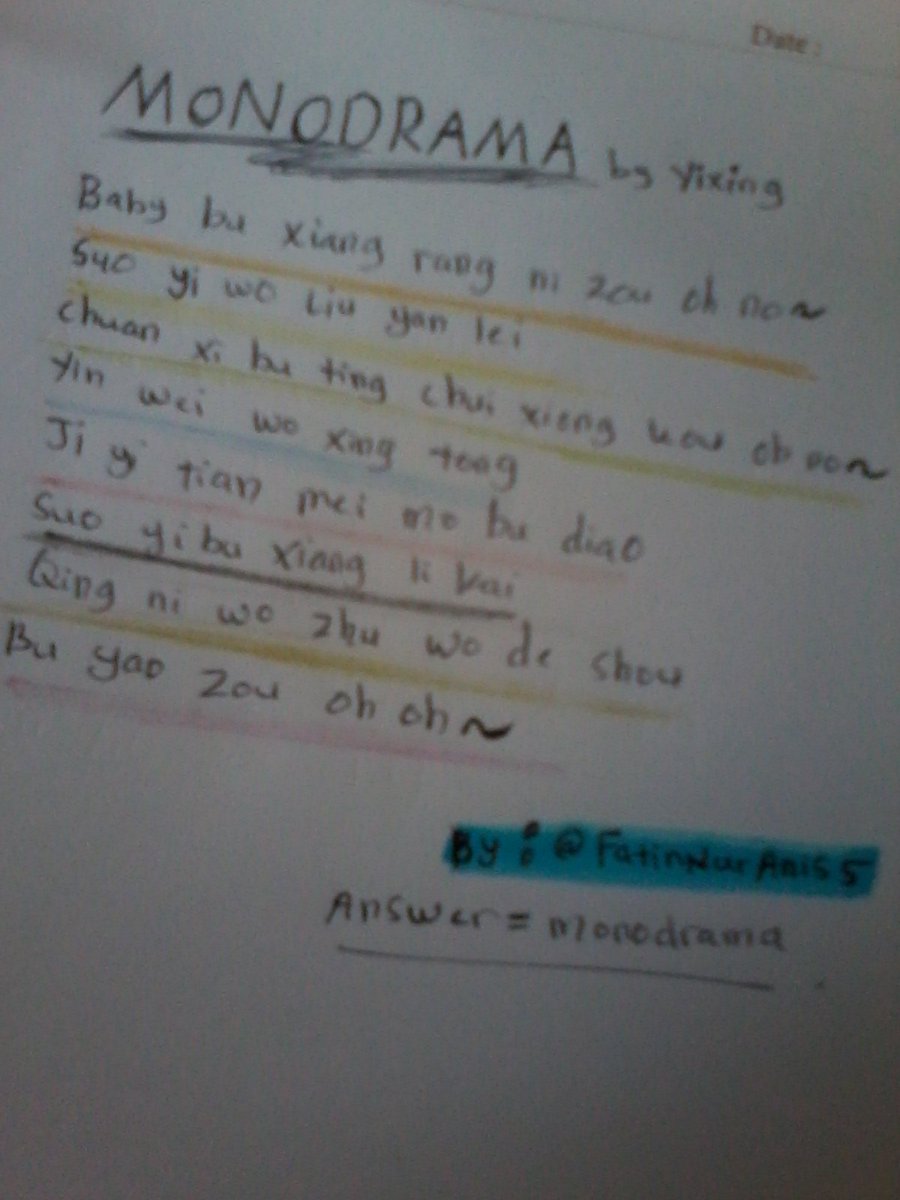 Date :
MONODRAMA by Yixing
Baby bu xiang rang ni zou oh no~
Suo yi wo Liu yan lei
chuan xi bu ting chui xiong kou oh no~
Yin wei wo xing tong
Ji yi tian mei mo bu diao
Suo yi bu xiang li kai
Qing ni wo zhu wo de shou
Bu yao zou oh oh~
By : @FatinNurAnis5
Answer = monodrama